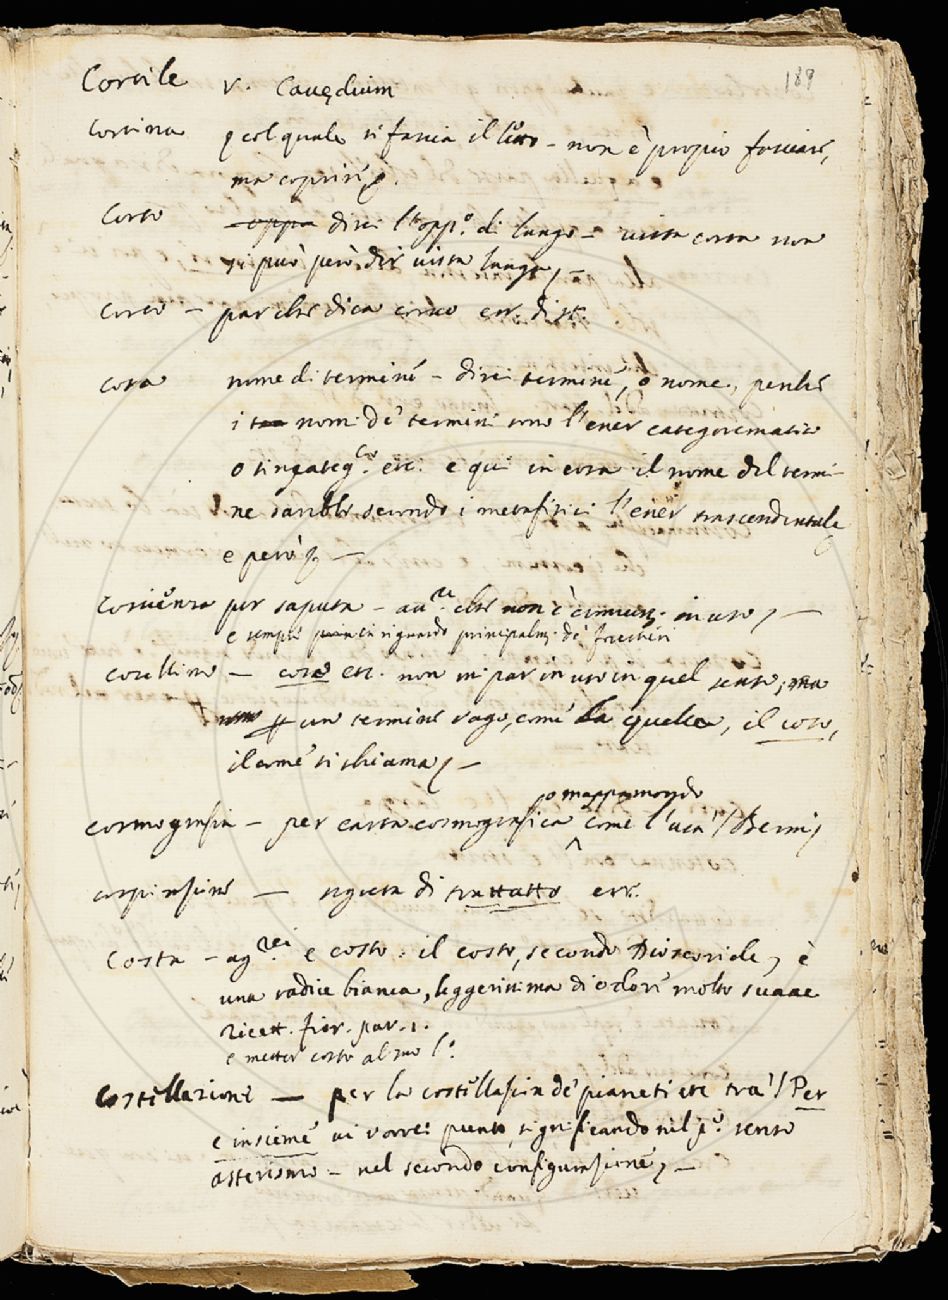 189
Cortile v. Cavędium
Cortina col quale si fascia il letto - non è propio fasciare,
ma coprire
Corto oppa direi l'opp.º di lungo - vista corta non
si può però dir vista lunga, -
Corvo - par che dica corvo err. di st.
cosa nome di termine - direi termine, o nome, perchè
i nomi de termini sono l'esser categorematico
o sincateg.co etc. e qui in cosa il nome del termi-
ne sarebbe secondo i metafisici l'esser trascendentale
e però -
Coscienza per saputa - che non è in uso, -
e sempre riguardo principalm. de forestieri
cosellino - cose etc. non mi par in uso in quel senso, ma
un termine vago, come la quella, il coso,
il come si chiama, -
o mappamondo
cosmografia - per carta cosmografica come l'usa 'l Berni,
cospirazione - di trattatto err.
Costa - ag.rei e costo: il costo, secondo Dioscoride, è
una radice bianca, leggerissima di odore molto suave
Ricett. fior. par. 1.
e metter costo al suo l.º
Costellazione - per la costellazion de pianeti etc tra 'l Per
e insieme vi vorrei punto, significando nel p.º senso
asterismo - nel secondo configurazione, -